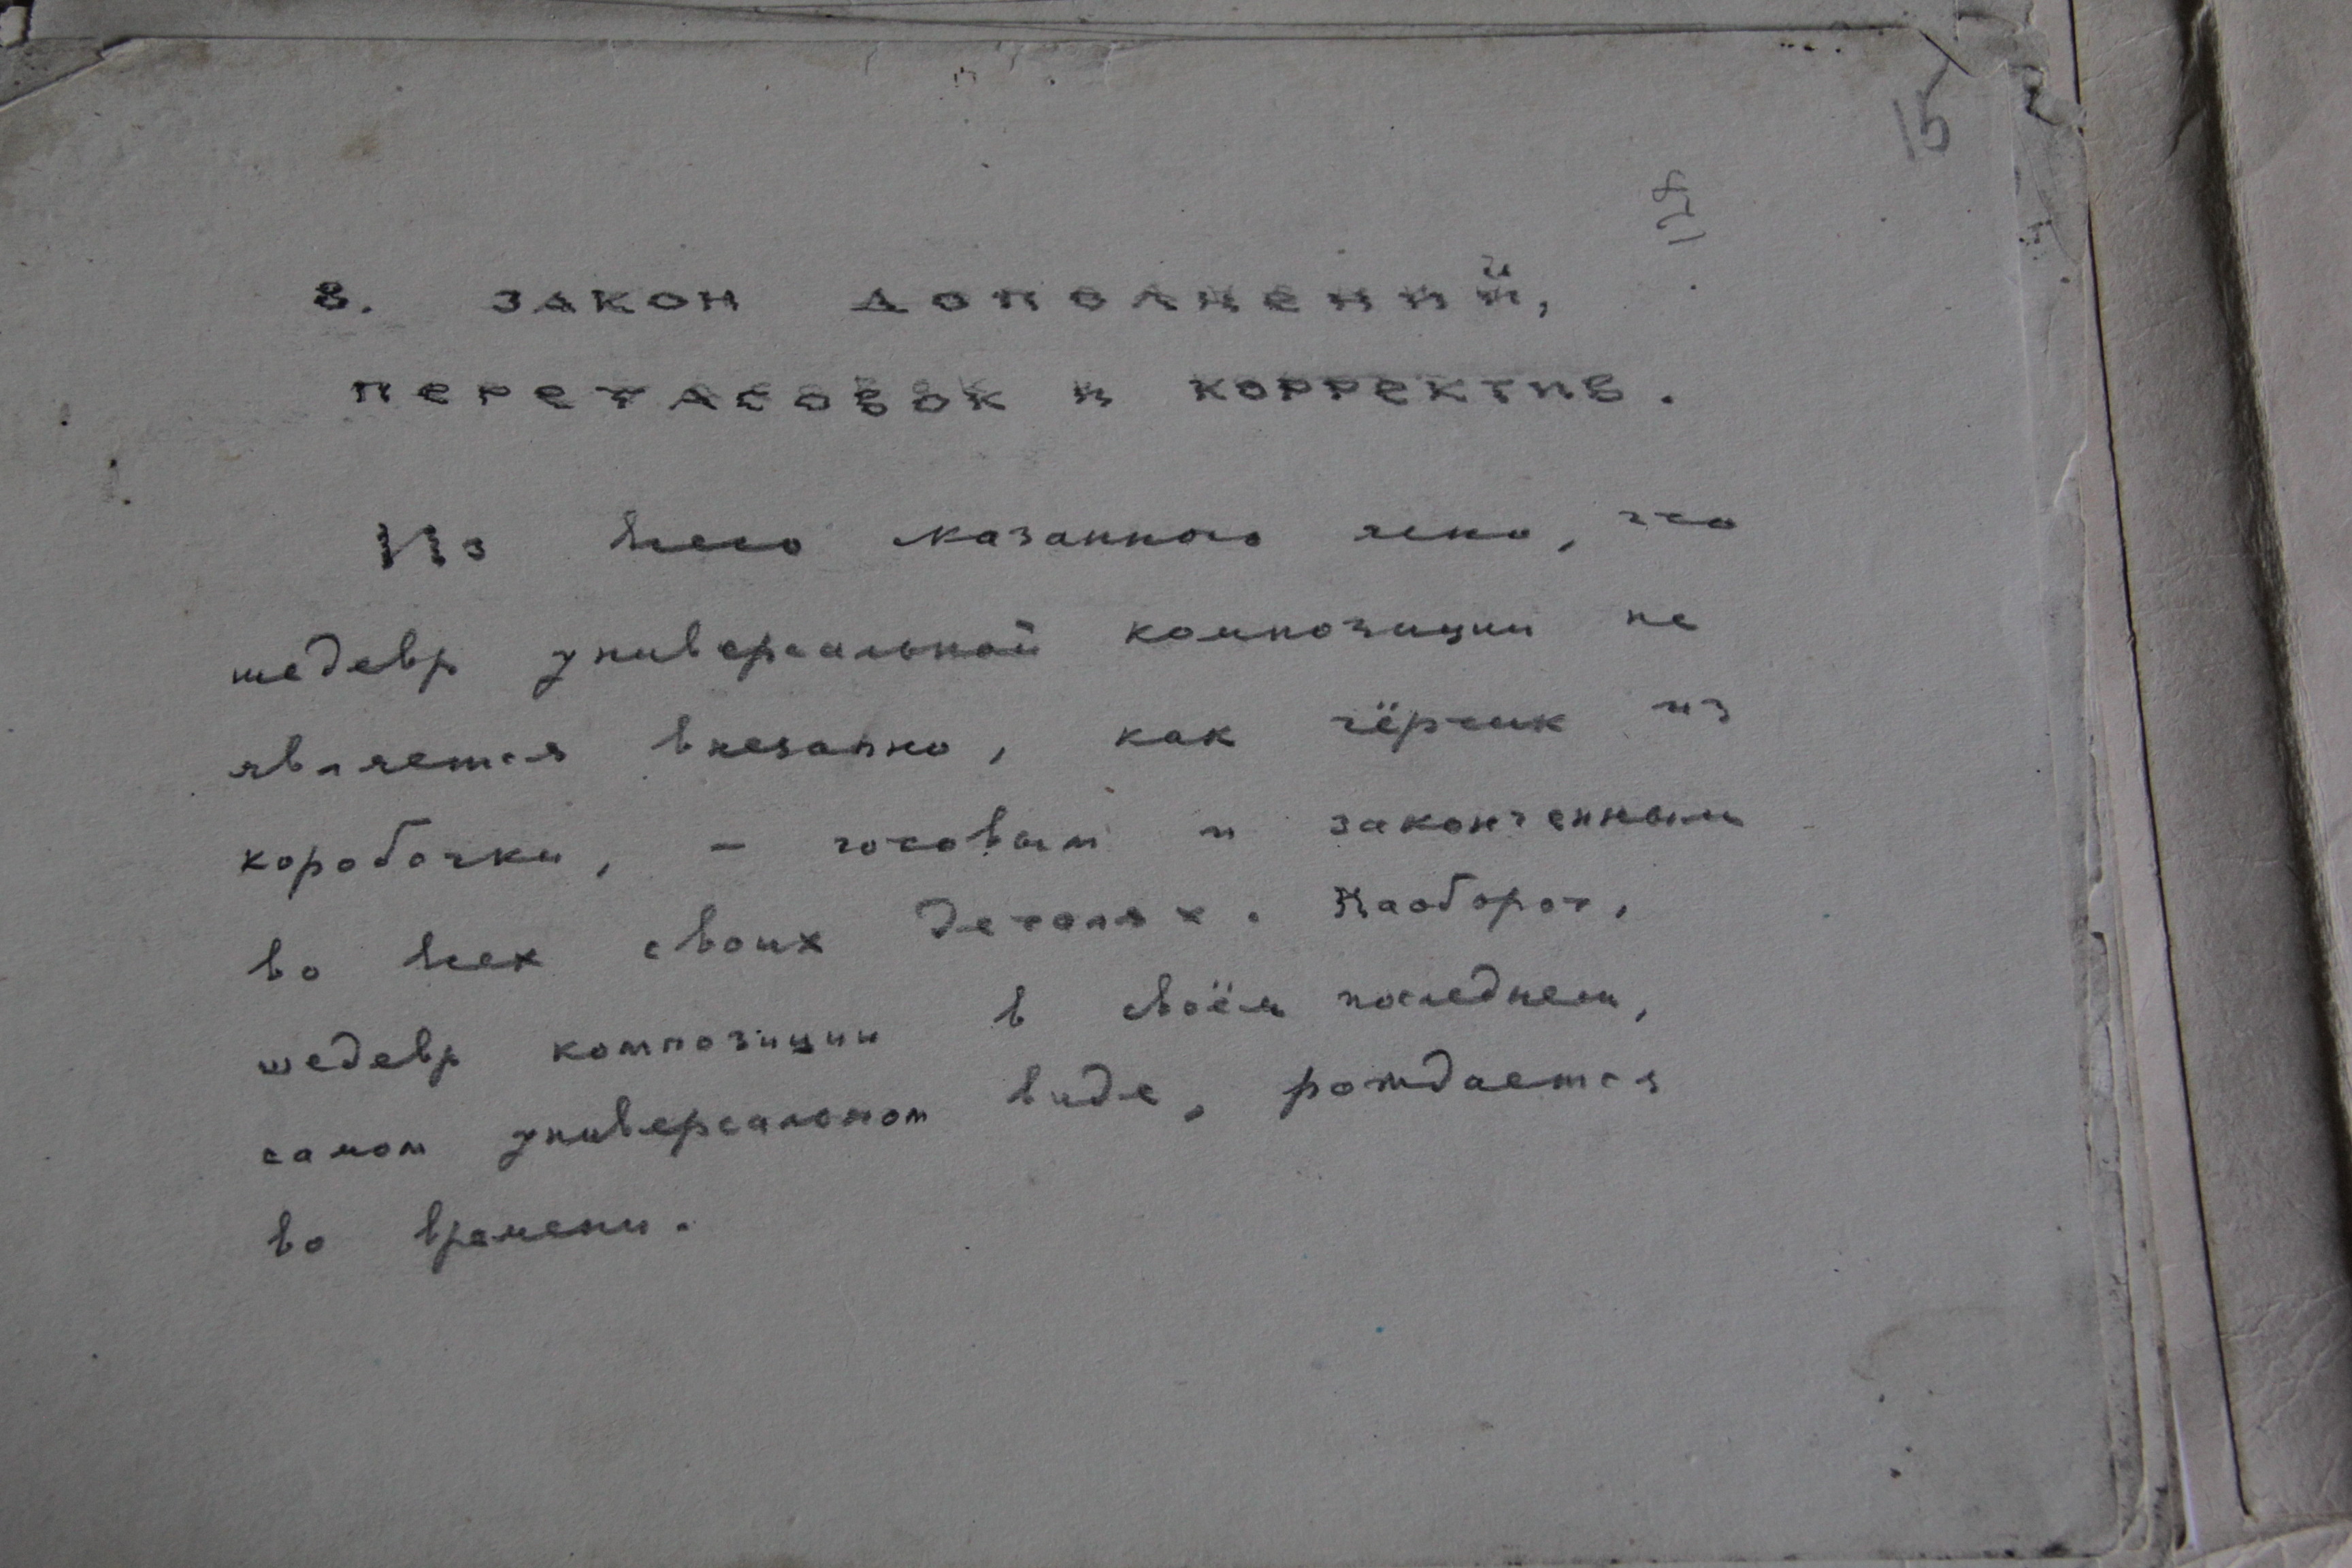 15
128
8. закон дополнений,
перетасовок и корректив.
Из всего сказанного ясно, что
шедевр универсальной композиции не
является внезапно, как чёртик из
коробочки, – готовым и законченным
во всех своих деталях. Наоборот,
шедевр композиции в своём последнем,
самом универсальном виде, рождается
во времени.